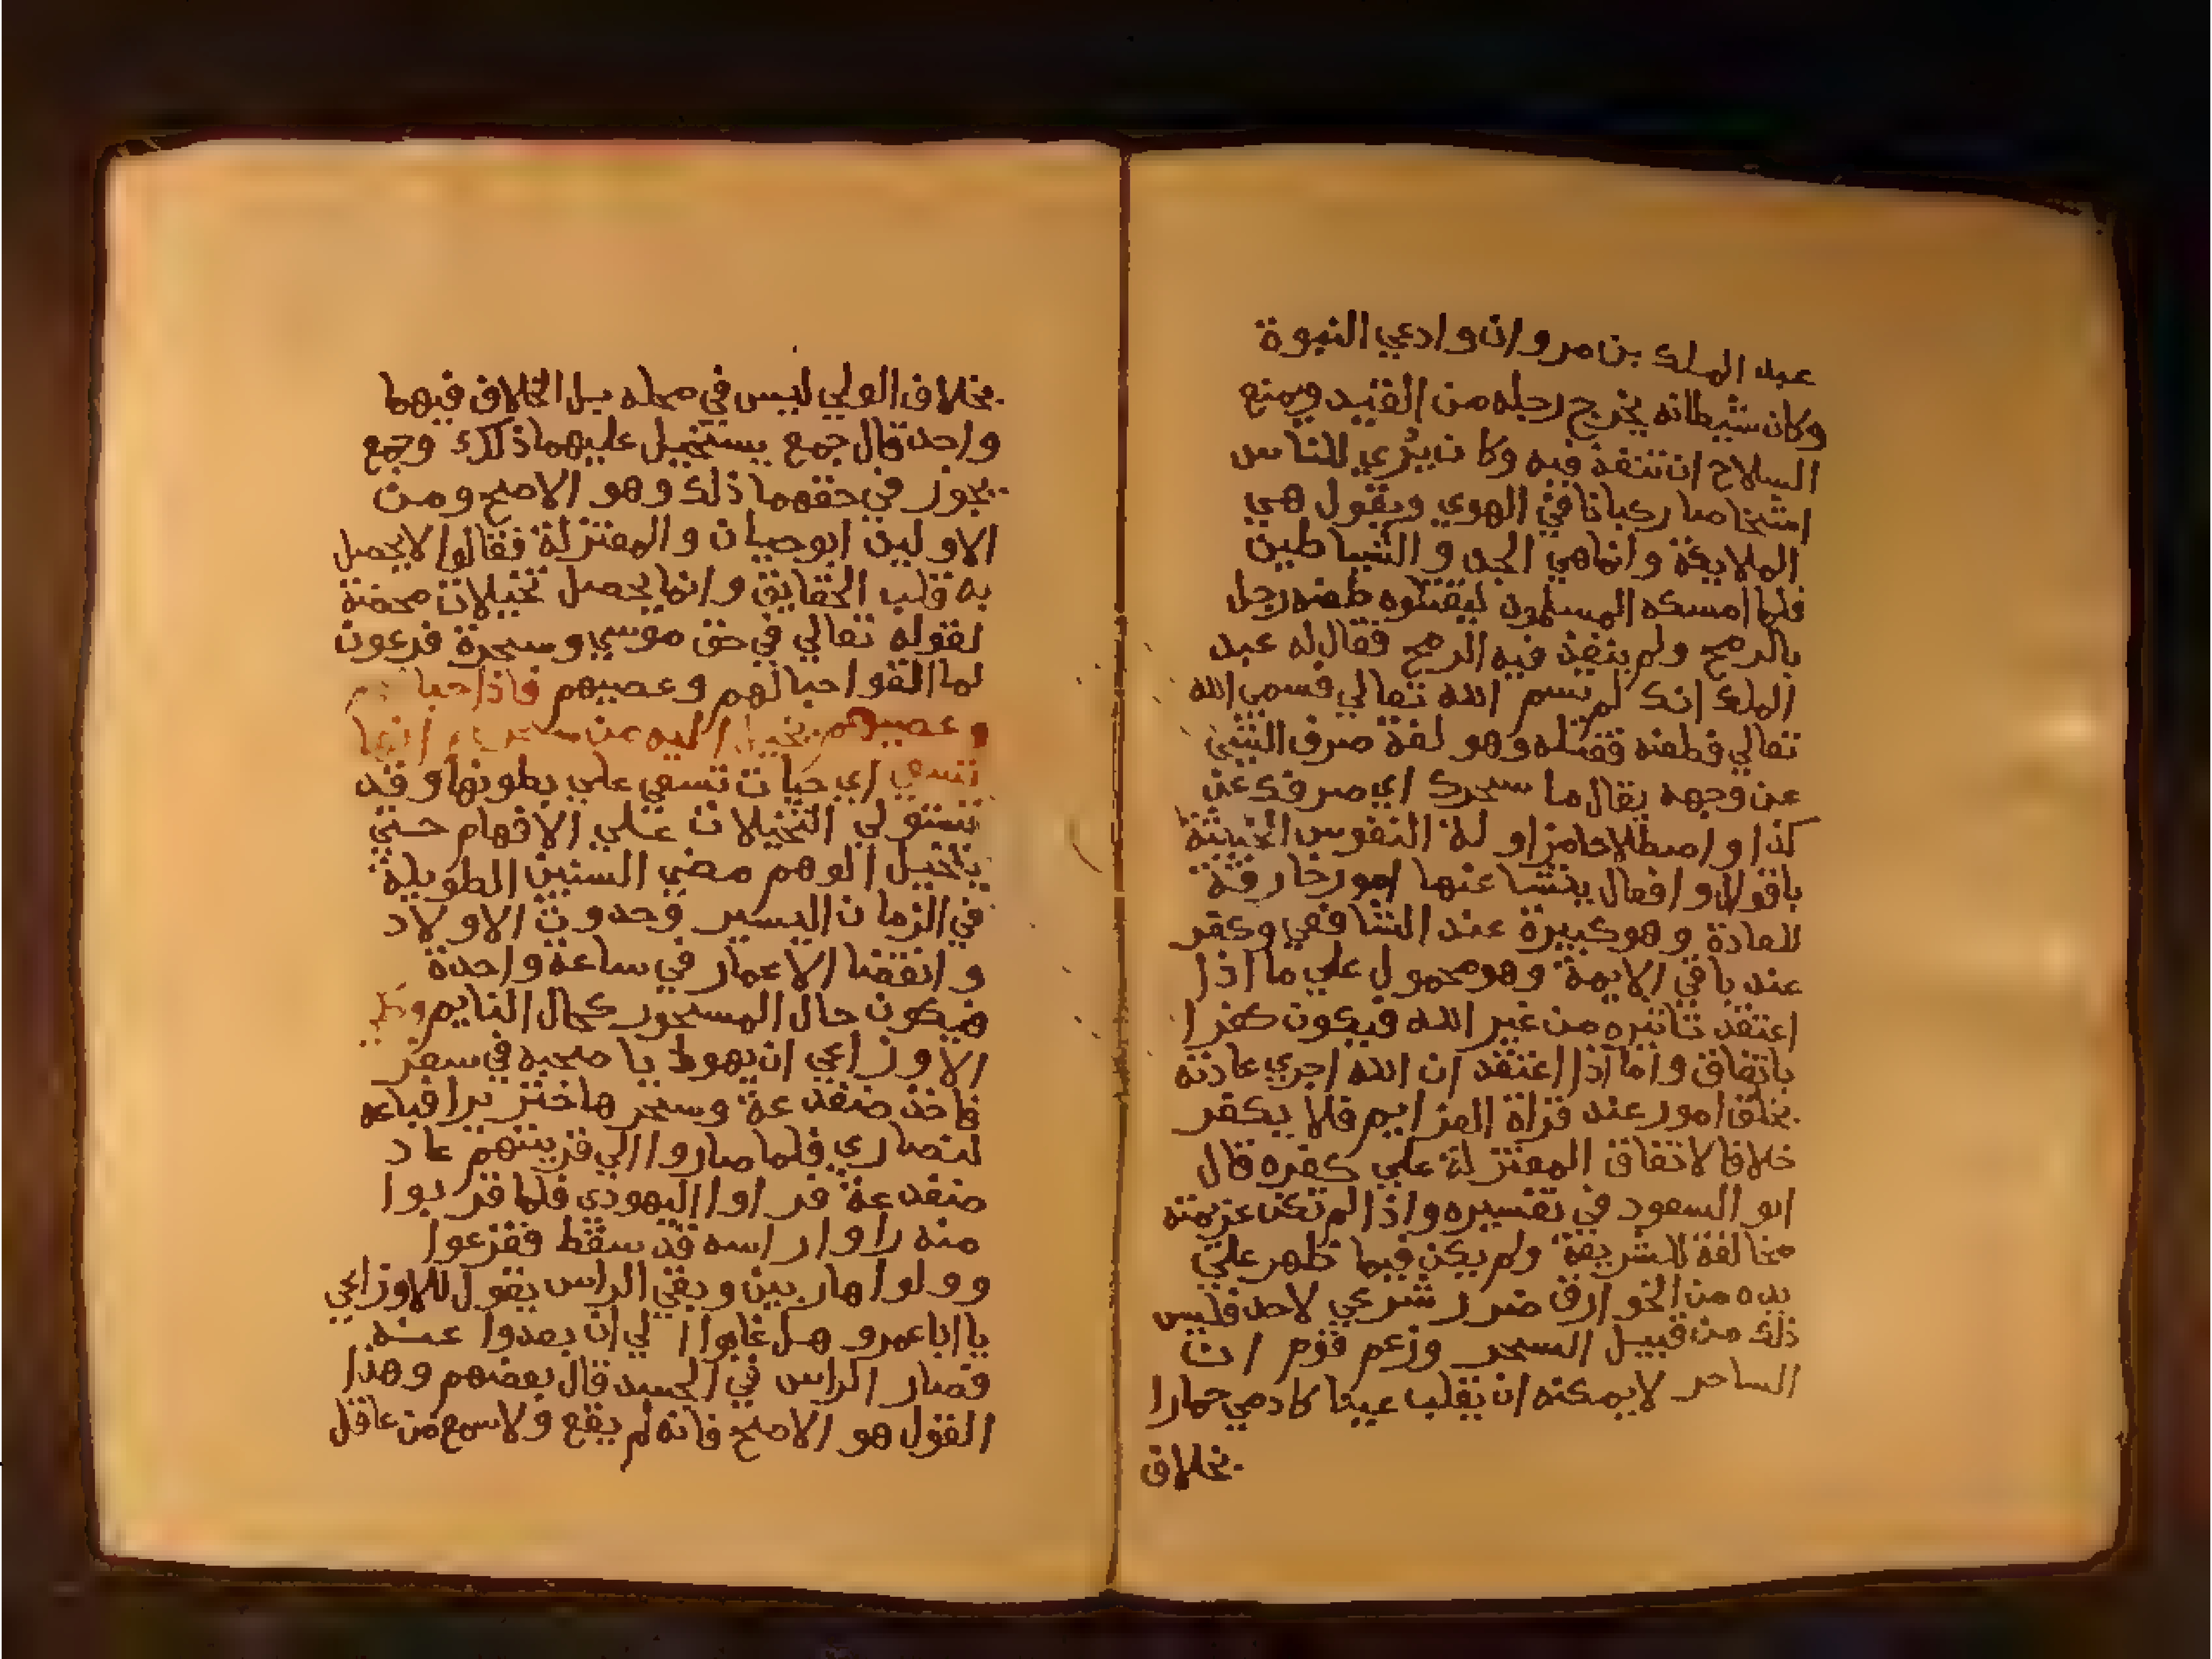 عبد الملك بن مروان وادعي النبوة
وكان شيطانه يخرج رجله من القيد ويمنع
السلاح ان تنفذ فيه وكان يري للناس
اشخاصا ركبانا في الهوي ويقول هي
الملايكة وانماهي الجن والشياطين
فلما امسكه المسلمون ليقتلوه طعنه رجل
بالرمح ولم ينفذ فيه الرمح فقال له عبد
الملك انك لم تسم الله تعالي فسمي الله
تعالي فطعنه فقتله وهو لغة صرف الشي
عن وجهه يقال ما سحرك اي صرفك عن
كذا واصطلاحا مزاولة النفوس الخبيثة
باقوال وافعال ينشا عنها امور خارقة
للعادة وهو كبيرة عند الشافعي وكفر
عند باقي الايمة وهو محمول علي ما اذا
اعتقد تاثيره من غير الله فيكون كفرا
باتفاق واما اذا اعتقد ان الله اجري عادته
بخلق امور عند قراة العزايم فلا يكفر
خلافا لاتفاق المعتزلة علي كفره قال
ابو السعود في تفسيره واذا لم تكن عزيمته
مخالفة للشريعة ولم يكن فيما ظهر علي
يده من الخوارق ضرر شرعي لاحد فليس
ذلك من قبيل السحر وزعم قوم ان
الساحر لا يمكنه ان يقلب عينا كادمي حمارا
بخلاف
بخلاف الولي ليس في محله بل الخلاف فيهما
واحد قال جمع يستحيل عليهما ذلك وجمع
يجوز في حقهما ذلك وهو الاصح ومن
الاولين ابوحيان والمعتزلة فقالوا لا يحصل
به قلب الحقايق وانما يحصل تخيلات محضة
لقوله تعالي في حق موسي وسحرة فرعون
لما القوا حبالهم وعصيهم فاذا حبالهم
وعصيهم يخيل اليه من سحرهم انها
تسعي اي حيات تسعي علي بطونها وقد
تستولي التخيلات علي الافهام حتي
يتخيل الوهم مضي السنين الطويلة
في الزمان اليسير وحدوث الاولاد
وانقضا الاعمار في ساعة واحدة
فيكون حال المسحور كحال النايم
الاوزاعي ان يهوديا صحبه في سفر
فاخذ ضفدعة وسحرها خنزيرا فباعه
لنصاري فلما صاروا الي قريتهم عاد
ضفدعة فراوا اليهودي فلما قربوا
منه راوا راسه قد سقط ففزعوا
وولوا هاربين وبقي الراس يقول للاوزاعي
يا ابا عمرو هل غابوا الي ان بعدوا عنه
فصار الراس في الجسد قال بعضهم وهذا
القول هو الاصح فانه لم يقع ولا سمع من عاقل